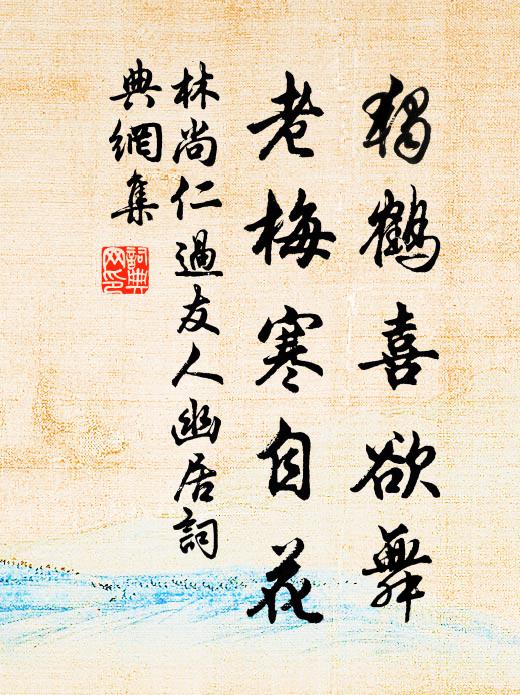 獨鶴喜欲舞
老梅寒自花
林尚仁過友人幽居詞
典網集
詞典
网印